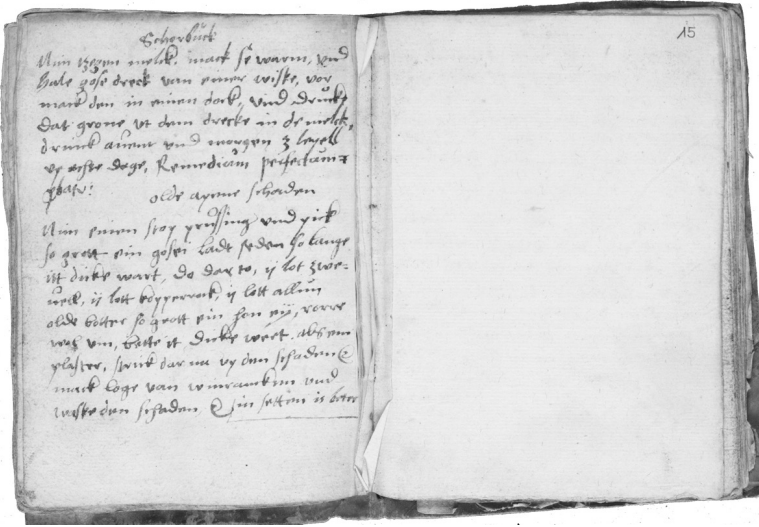 Schorbuck
Nim tzegen melck, mack se warm, vnd
hale gose dreck van einer wiske, vor
mack den in einen dock, vnd druck
dat grone vt dem drecke in de melck,
drinck auent vnd morgen 3 lepell
vp achte dage, Remedium perfectum
probatu:
olde apene schaden
Nim einen stop prussing vnd pick
so grott ein gosei ladt seden so lange
itt dicke wart, do dar to, ij lot zwe-
uell, ij lott kopperrock, ij lott allun
olde botter so grott ein hon ey, rorre
woll vm, batte it dicke wert als ein
plaster, strick dar na vp den schaden
mack loge van winrancken vnd
wiske den schaden in setten is beter
15